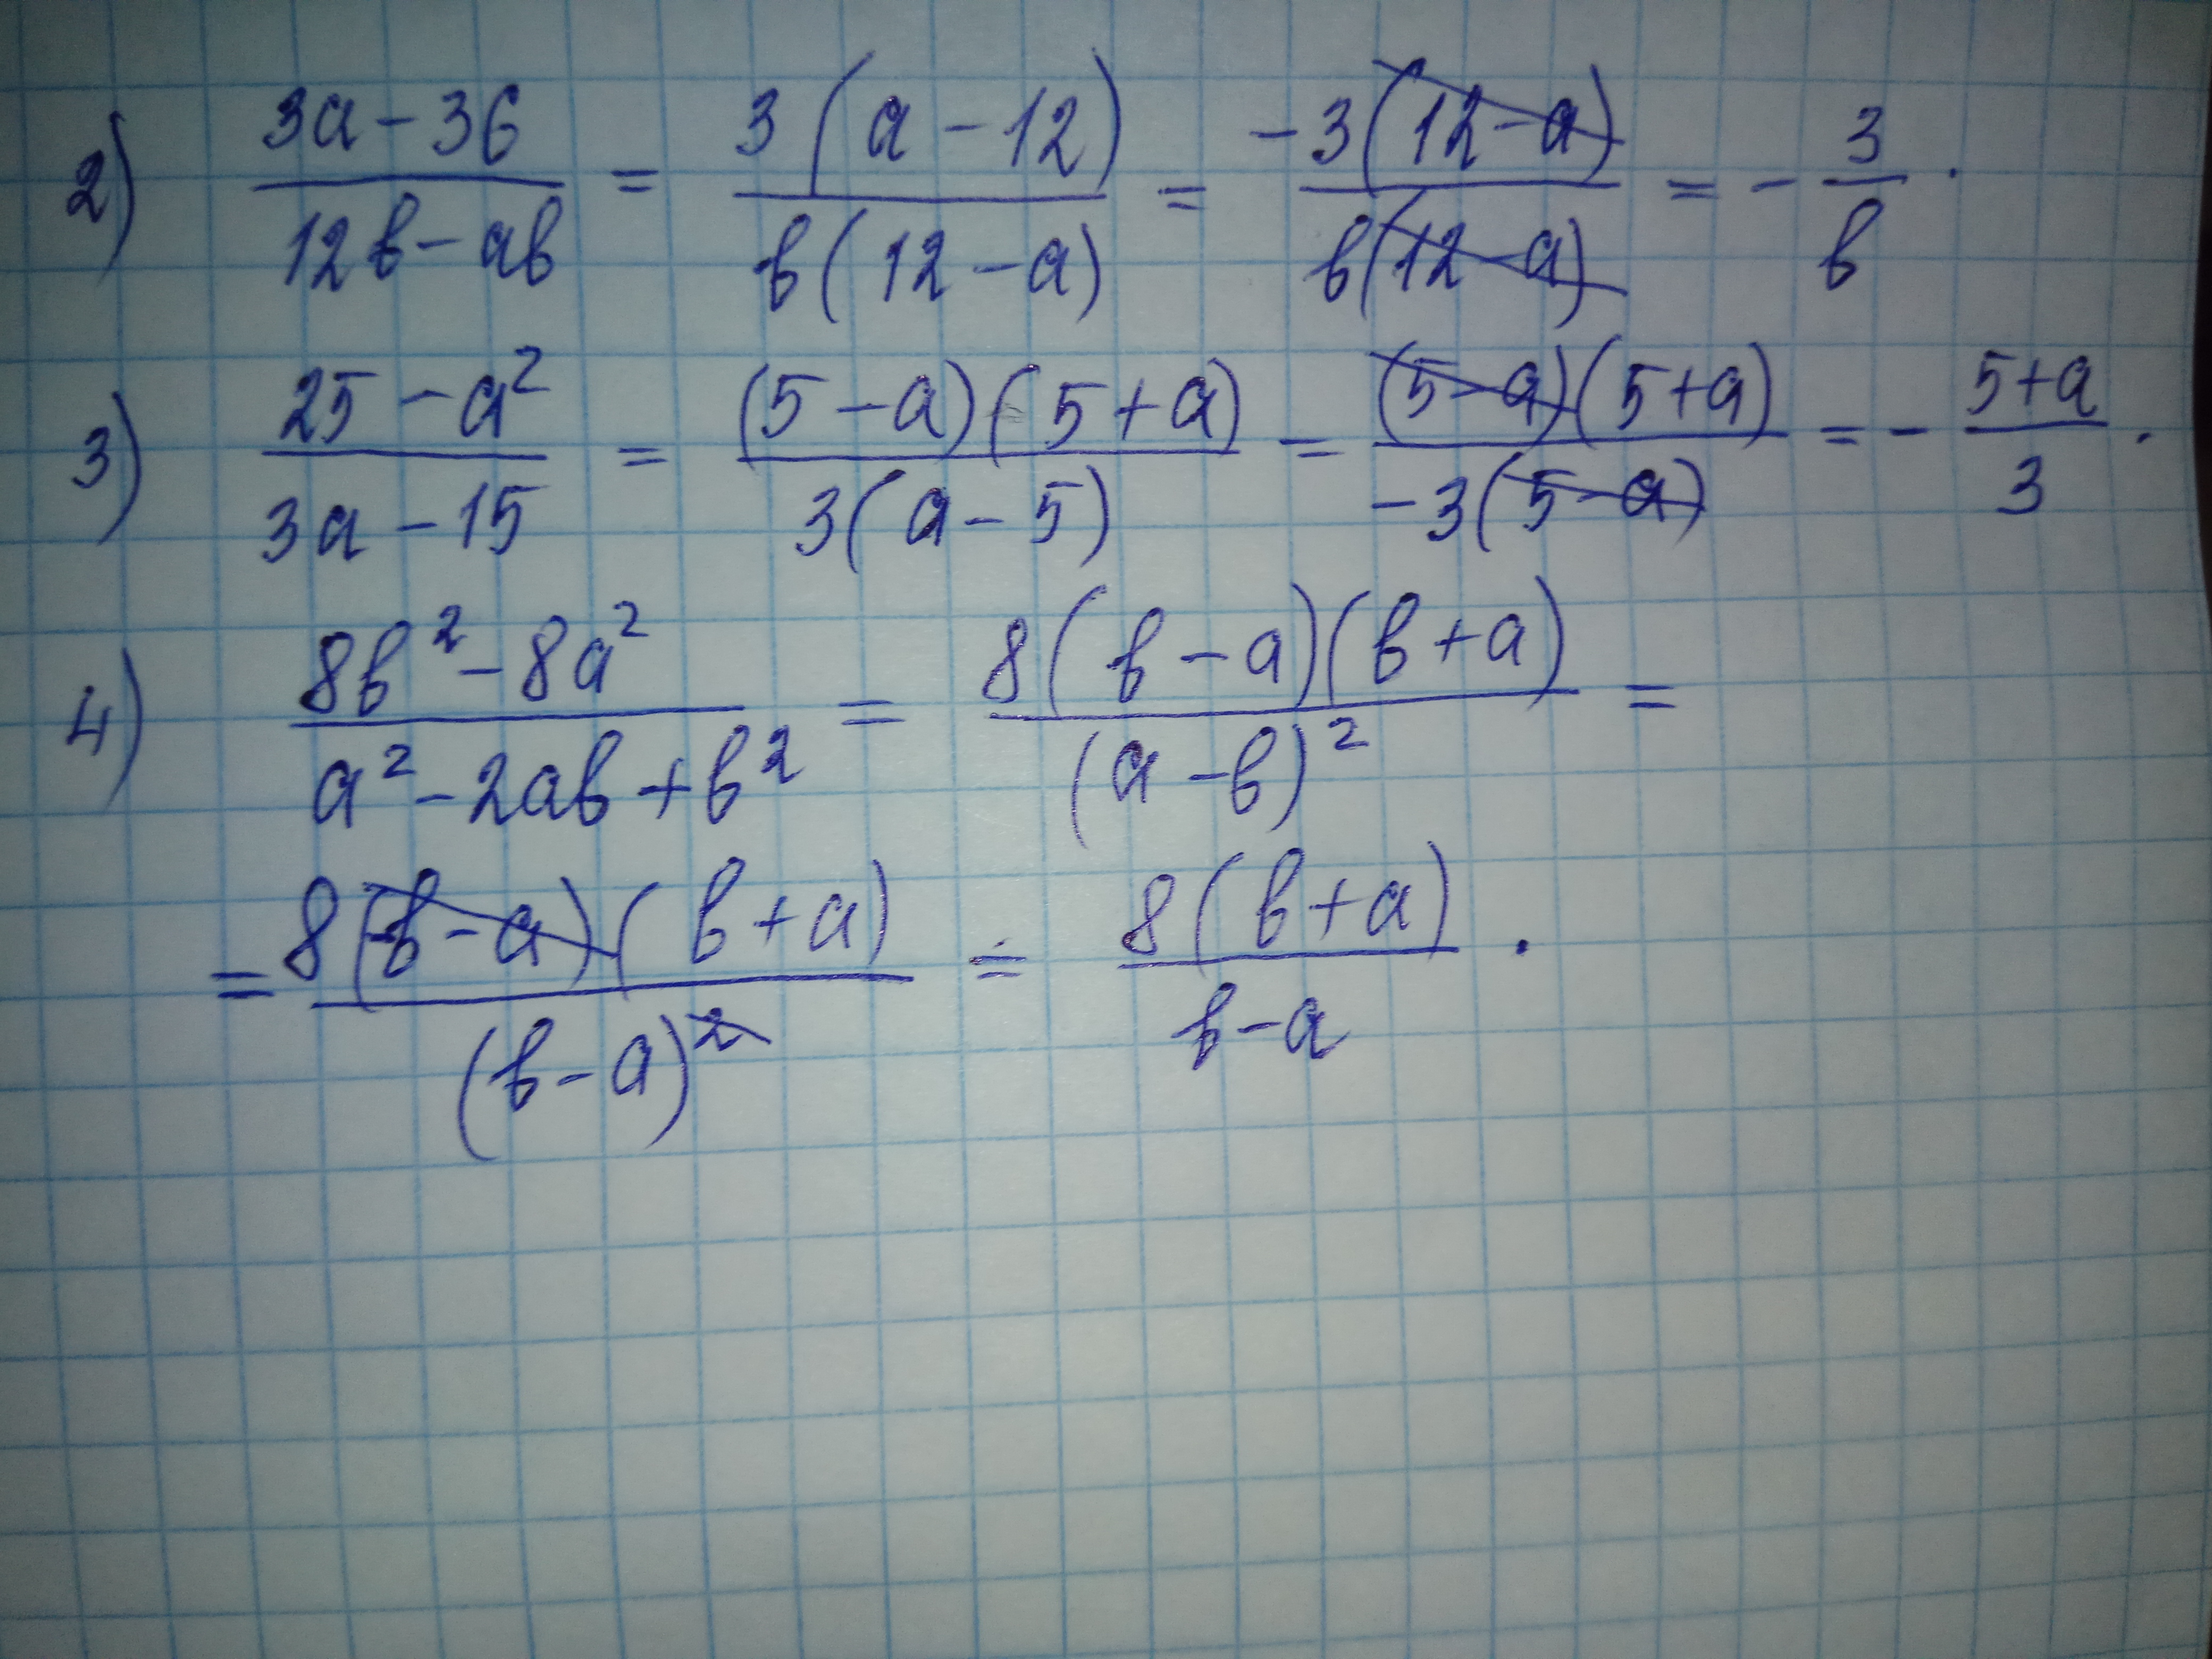 2) (3a-36)/(12в-ав) = 3(a-12)/в(12-a) = -3(12-a)/в(12-a) = -3/в.
3) (25-a²)/(3a-15) = (5-a)(5+a)/3(a-5) = (5-a)(5+a)/-3(5-a) = -(5+a)/3.
4) (8в²-8a²)/(a²-2aв+в²) = 8(в-a)(в+a)/(a-в)² =
= 8(в-a)(в+a)/(в-a)² = 8(в+a)/(в-a).